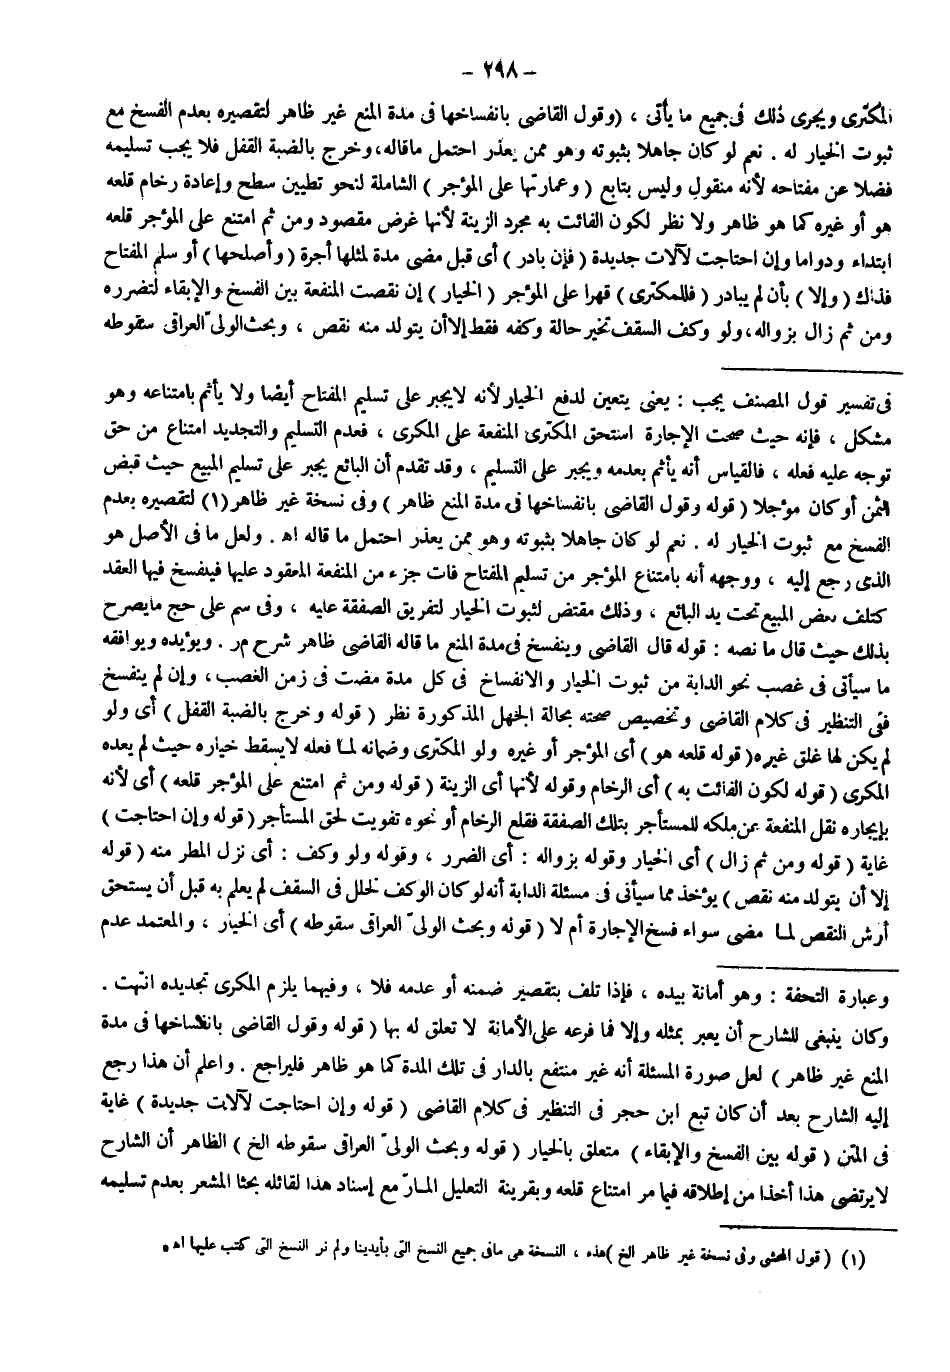 - ٢٩٨ -
المكترى ويجرى ذلك فى جميع ما يأتى ، (وقول القاضى بانفساخها فى مدة المنع غير ظاهر لتقصيره بعدم الفسخ مع
ثبوت الخيار له . نعم لو كان جاهلا بثبوته وهو ممن يعذر احتمل ماقاله، وخرج بالضبة القفل فلا يجب تسليمه
فضلا عن مفتاحه لأنه منقول وليس بتابع ( وعمارتها على المؤجر ) الشاملة لنحو تطيين سطح وإعادة رخام قلعه
هو أو غيره كما هو ظاهر ولا نظر لكون الفائت به مجرد الزينة لأنها غرض مقصود ومن ثم امتنع على المؤجر قلعه
ابتداء ودواما وإن احتاجت لآلات جديدة ( فإن بادر ) أى قبل مضى مدة لمثلها أجرة ( وأصلحها ) أو سلم المفتاح
فذاك ( وإلا ) بأن لم يبادر ( فللمكترى ) قهرا على المؤجر ( الخيار ) إن نقصت المنفعة بين الفسخ والإبقاء لتضرره
ومن ثم زال بزواله، ولو وكف السقف تخير حالة وكفه فقط إلا أن يتولد منه نقص ، وبحث الولىّ العراقى سقوطه
فى تفسير قول المصنف يجب : يعنى يتعين لدفع الخيار لأنه لايجبر على تسليم المفتاح أيضا ولا يأثم بامتناعه وهو
مشكل ، فإنه حيث صحت الإجارة استحق المكترى المنفعة على المكرى ، فعدم التسليم والتجديد امتناع من حق
توجه عليه فعله ، فالقياس أنه يأثم بعدمه ويجبر على التسليم ، وقد تقدم أن البائع يجبر على تسليم المبيع حيث قبض
الثمن أو كان مؤجلا ( قوله وقول القاضى بانفساخها فى مدة المنع ظاهر ) وفى نسخة غير ظاهر (١) لتقصيره بعدم
الفسخ مع ثبوت الخيار له . نعم لو كان جاهلا بثبوته وهو ممن يعذر احتمل ما قاله اه . ولعل ما فى الأصل هو
الذى رجع إليه ، ووجهه أنه بامتناع المؤجر من تسليم المفتاح فات جزء من المنفعة المعقود عليها فينفسخ فيها العقد
كتلف بعض المبيع تحت يد البائع ، وذلك مقتض لثبوت الخيار لتفريق الصفقة عليه ، وفى سم على حج مايصرح
بذلك حيث قال ما نصه : قوله قال القاضى وينفسخ فى مدة المنع ما قاله القاضى ظاهر شرح مر . ويؤيده ويوافقه
ما سيأتى فى غصب نحو الدابة من ثبوت الخيار والانفساخ فى كل مدة مضت فى زمن الغصب ، وإن لم ينفسخ
ففى التنظير فى كلام القاضى وتخصيص صحته بحالة الجهل المذكورة نظر ( قوله وخرج بالضبة القفل ) أى ولو
لم يكن لها غلق غيره ( قوله قلعه هو ) أى المؤجر أو غيره ولو المكترى وضمانه لما فعله لايسقط خياره حيث لم يعده
المكرى ( قوله لكون الفائت به ) أى الرخام وقوله لأنها أى الزينة ( قوله ومن ثم امتنع على المؤجر قلعه ) أى لأنه
بإيجاره نقل المنفعة عن ملكه للمستأجر بتلك الصفقة فقلع الرخام أو نحوه تفويت لحق المستأجر ( قوله وإن احتاجت )
غاية ( قوله ومن ثم زال ) أى الخيار وقوله بزواله : أى الضرر ، وقوله ولو وكف : أى نزل المطر منه ( قوله
إلا أن يتولد منه نقص ) يؤخذ مما سيأتى فى مسئلة الدابة أنه لو كان الوكف لخلل فى السقف لم يعلم به قبل أن يستحق
أرش النقص لما مضى سواء فسخ الإجارة أم لا ( قوله وبحث الولىّ العراقى سقوطه ) أى الخيار ، والمعتمد عدم
وعبارة التحفة : وهو أمانة بيده ، فإذا تلف بتقصير ضمنه أو عدمه فلا ، وفيهما يلزم المكرى تجديده انتهت .
وكان ينبغى للشارح أن يعبر بمثله وإلا فما فرعه على الأمانة لا تعلق له بها ( قوله وقول القاضى بانفساخها فى مدة
المنع غير ظاهر ) لعل صورة المسئلة أنه غير منتفع بالدار فى تلك المدة كما هو ظاهر فليراجع . واعلم أن هذا رجع
إليه الشارح بعد أن كان تبع ابن حجر فى التنظير فى كلام القاضى ( قوله وإن احتاجت لآلات جديدة ) غاية
فى المتن ( قوله بين الفسخ والإبقاء ) متعلق بالخيار ( قوله وبحث الولىّ العراقى سقوطه الخ ) الظاهر أن الشارح
لايرتضى هذا أخذا من إطلاقه فيما مر امتناع قلعه وبقرينة التعليل المارّ مع إسناد هذا لقائله بحثا المشعر بعدم تسليمه
(١) ( قول المحشى وفى نسخة غير ظاهر الخ )هذه ، النسخة هى مافى جميع النسخ التى بأيدينا ولم نر النسخ التى كتب عليها اه .